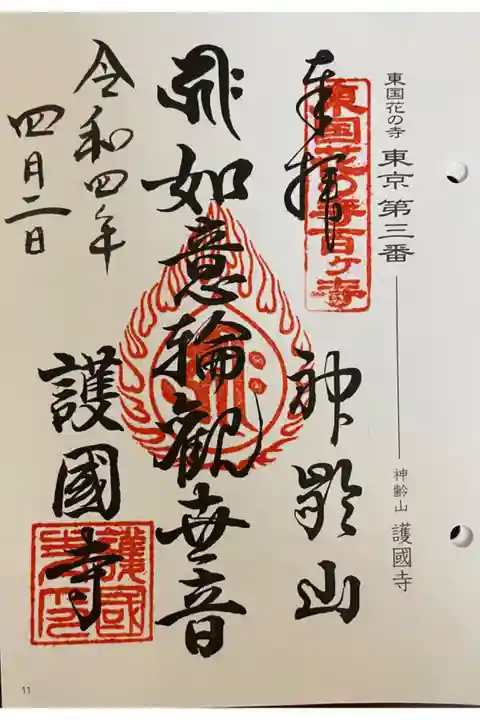 東国花の寺 東京 第三番 神齢山 護國寺
奉拝
東国花の寺百ヶ寺
神齢山
如意輪觀世音
護國寺
令和四年
四月二日
11